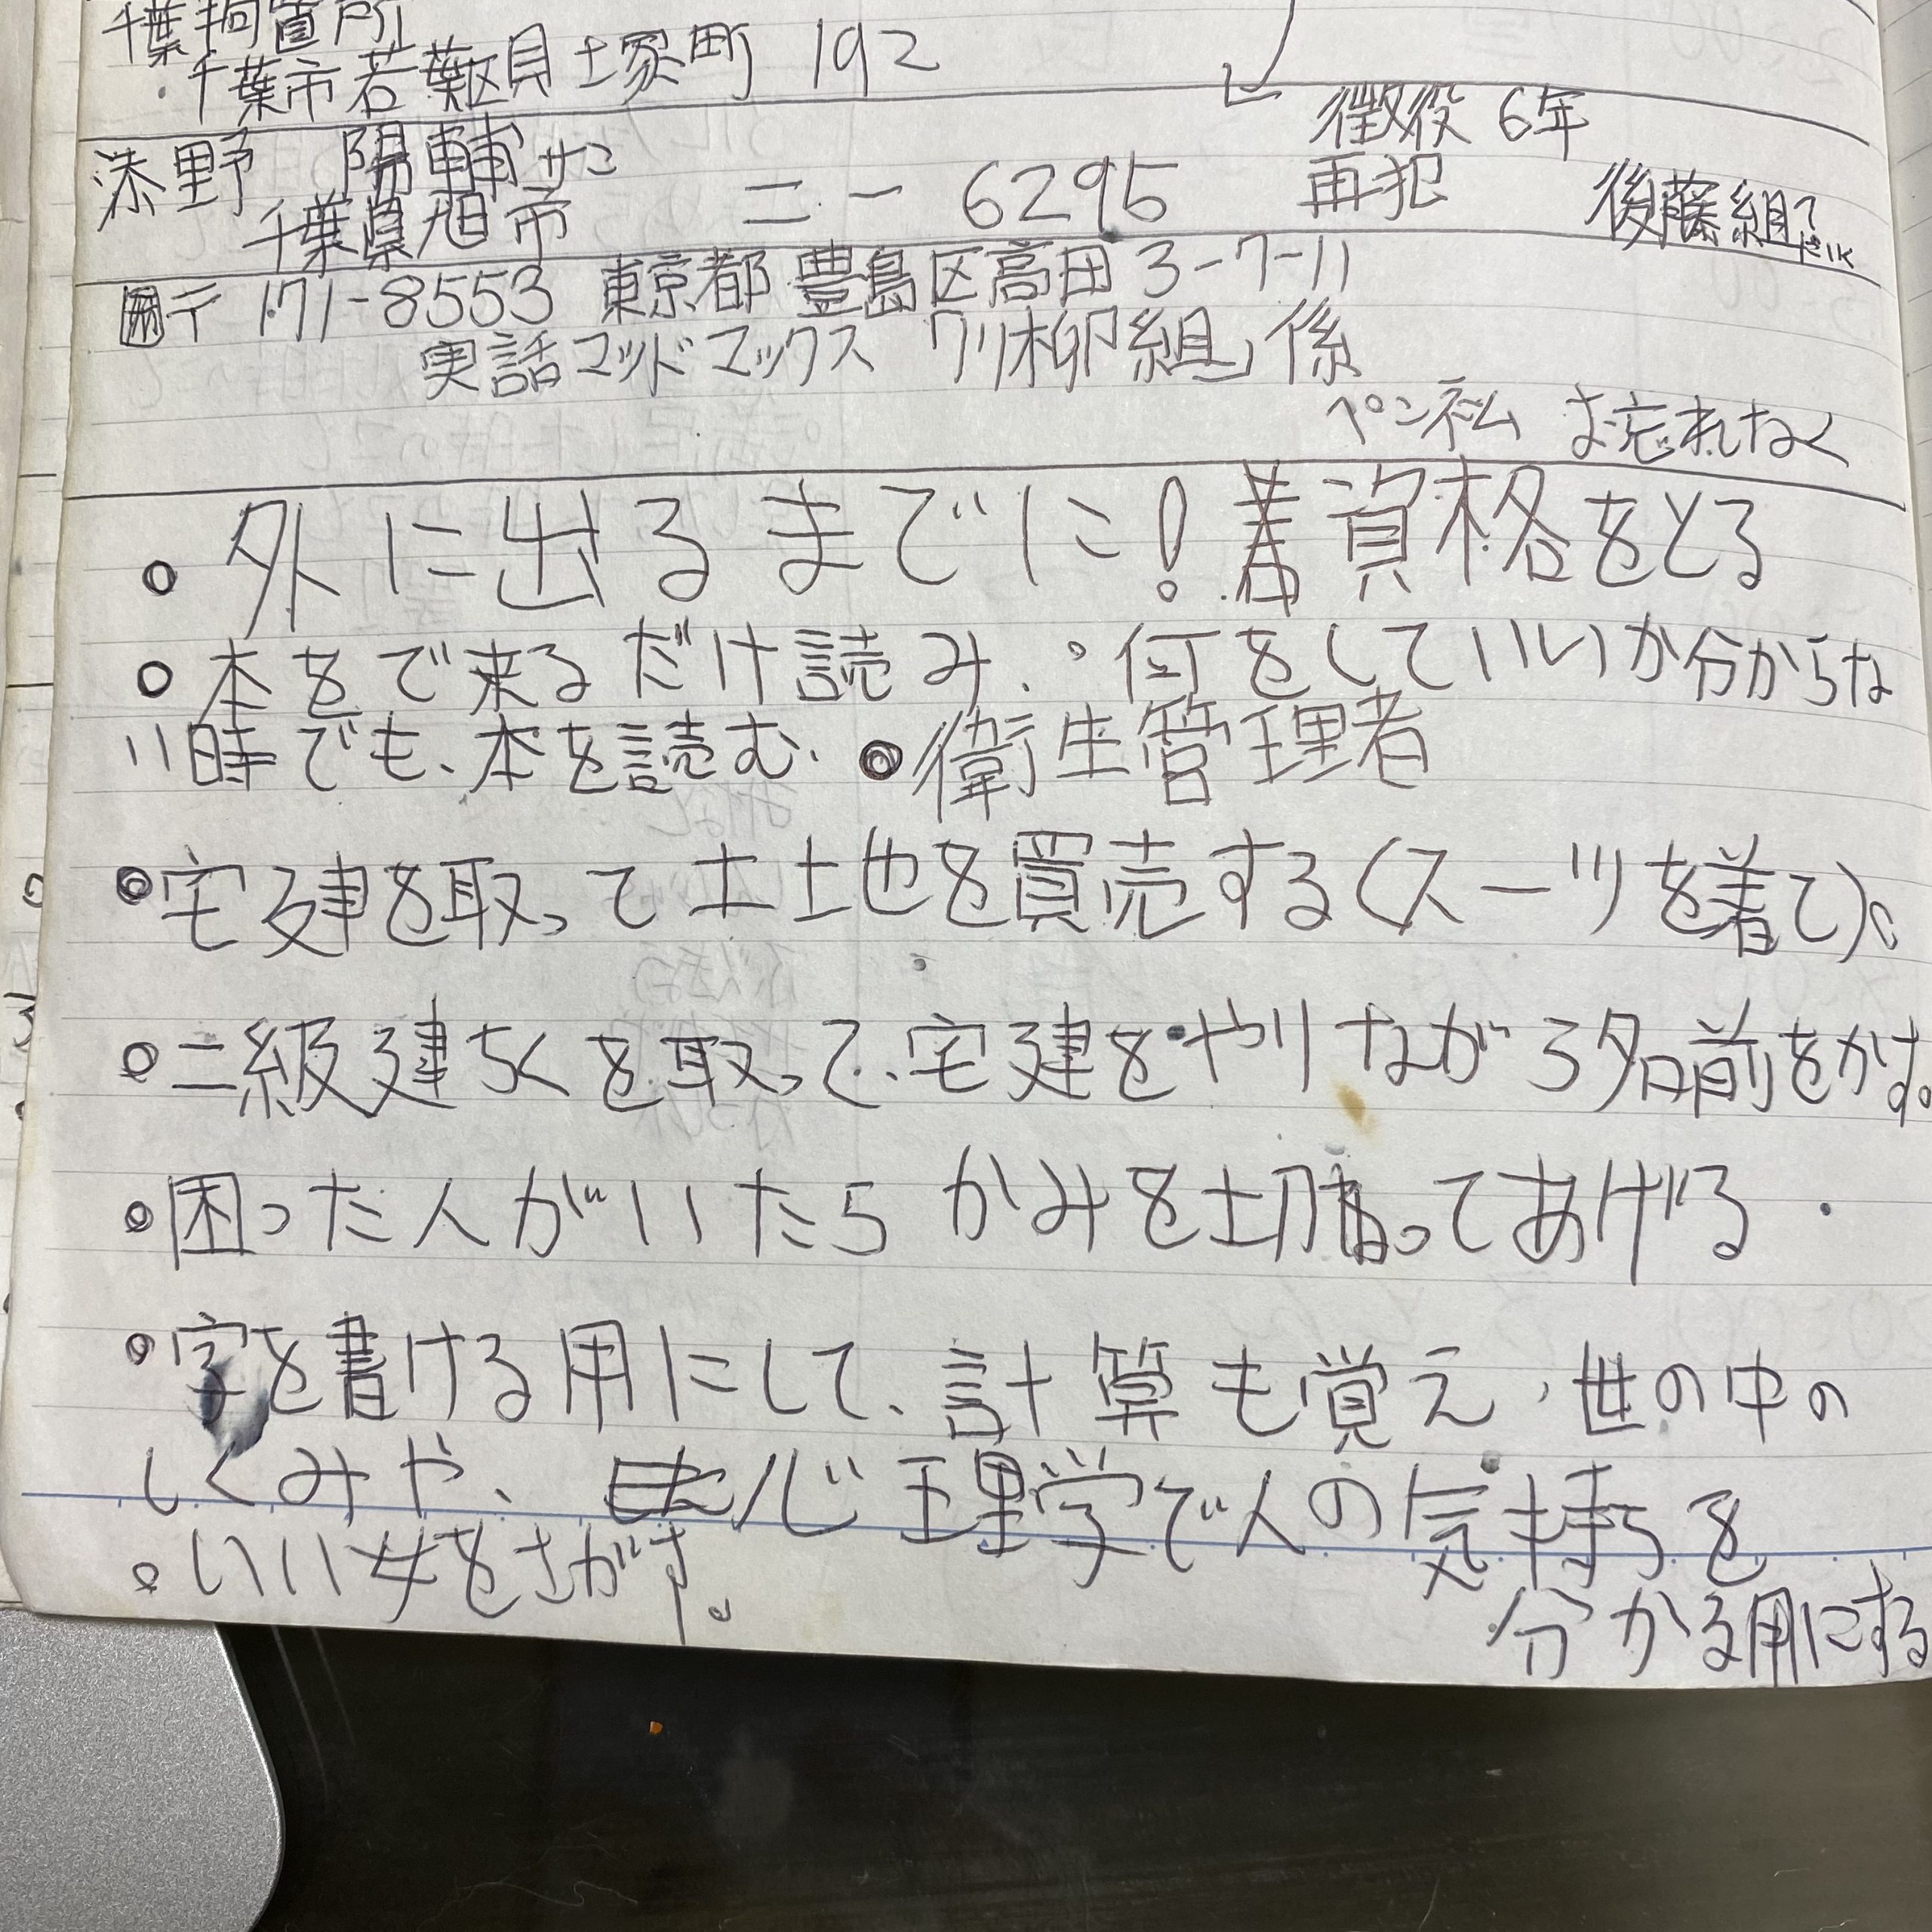 千葉拘置所
千葉市若葉区貝塚町 192
添野 陽輔サン 二一 6295 徴役 6年 再犯
千葉県旭市 後藤組
〒171-8553 東京都豊島区高田3-7-11
実話マッドマックス 「川柳組」係
ペン私 お忘れなく
・外に出るまでに!資格をとる
・本をで来るだけ読み、・何をしていいか分からな
い時でも、本を読む、◎衛生管理者
◎宅建を取って土土地を買売する(スーツを着て)。
・二級建ちくを取って、宅建をやりながら名前をかす。
・困った人がいたらかみを切ってあげる.
・字を書ける用にして、計算も覚え、世の中の
しくみや、心理学で人の気持ちを
分かる用にする
・いい女をさがす。